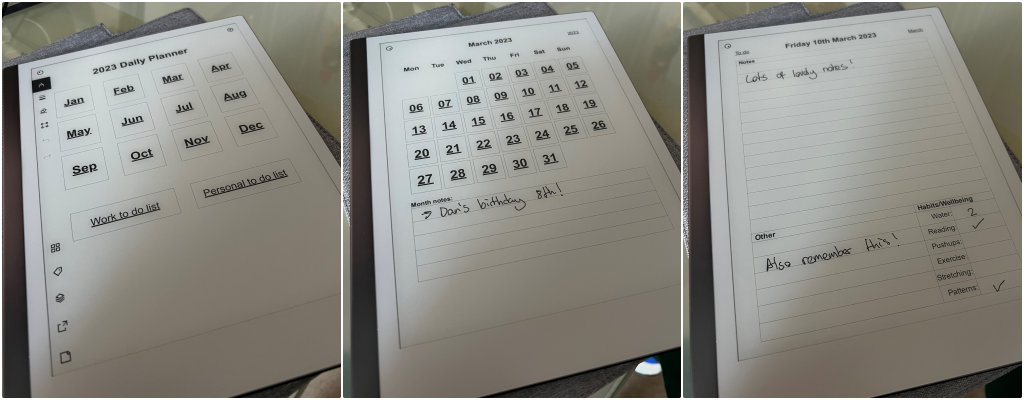 2023 Daily Planner
Jan Feb Mar Apr
May Jun Jul Aug
Sep Oct Nov Dec
Work to do list Personal to do list
March 2023
2023
Mon Tue Wed Thu Fri Sat Sun
01 02 03 04 05
06 07 08 09 10 11 12
13 14 15 16 17 18 19
20 21 22 23 24 25 26
27 28 29 30 31
Month notes:
→ Dan's birthday 8th!
Friday 10th March 2023
March
Notes
Lots of lovely notes!
Other
Also remember this!
Habits/Wellbeing
Water: 2
Reading: ✓
Pushups:
Exercise:
Stretching:
Patterns: ✓